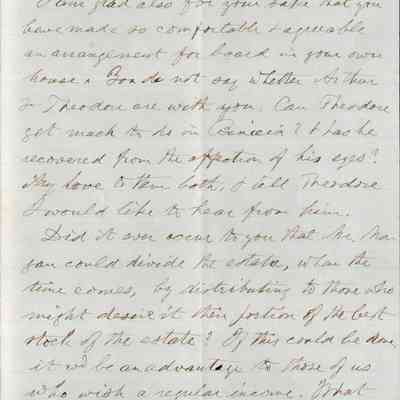 I am glad also for your sake that you
have made so comfortable & agreeable
an arrangement for board in your own
house. You do not say whether Arthur
& Theodore are with you. Can Theodore
get much to do in Benicia? & has he
recovered from the affection of his eyes?
My love to them both, & tell Theodore
I would like to hear from him.
Did it ever occur to you that Mr. Ma-
gau could divide the estate, when the
time comes, by distributing to those who
might desire it their portion of the best
stock of the estate? If this could be done,
it wd be an advantage to those of us
who wish a regular income. What